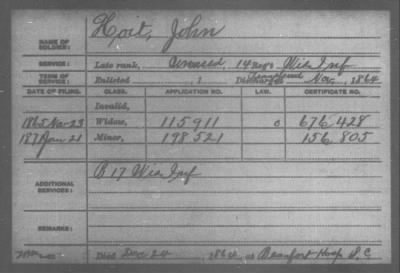 NAME OF SOLDIER: Hoit, John
SERVICE: Late rank, 14 Reg't Wis Inf
TERM OF SERVICE: Enlisted , 1 Discharged Nov, 1864
DATE OF FILING. CLASS. APPLICATION NO. LAW. CERTIFICATE NO.
Invalid,
1865 Nov 23 Widow, 115911 o 676 428
187 Jan 21 Minor, 198 521 156 805
ADDITIONAL SERVICES: B 17 Wis Inf
REMARKS:
Died Dec 20 1864, at Beaufort Hosp S.C